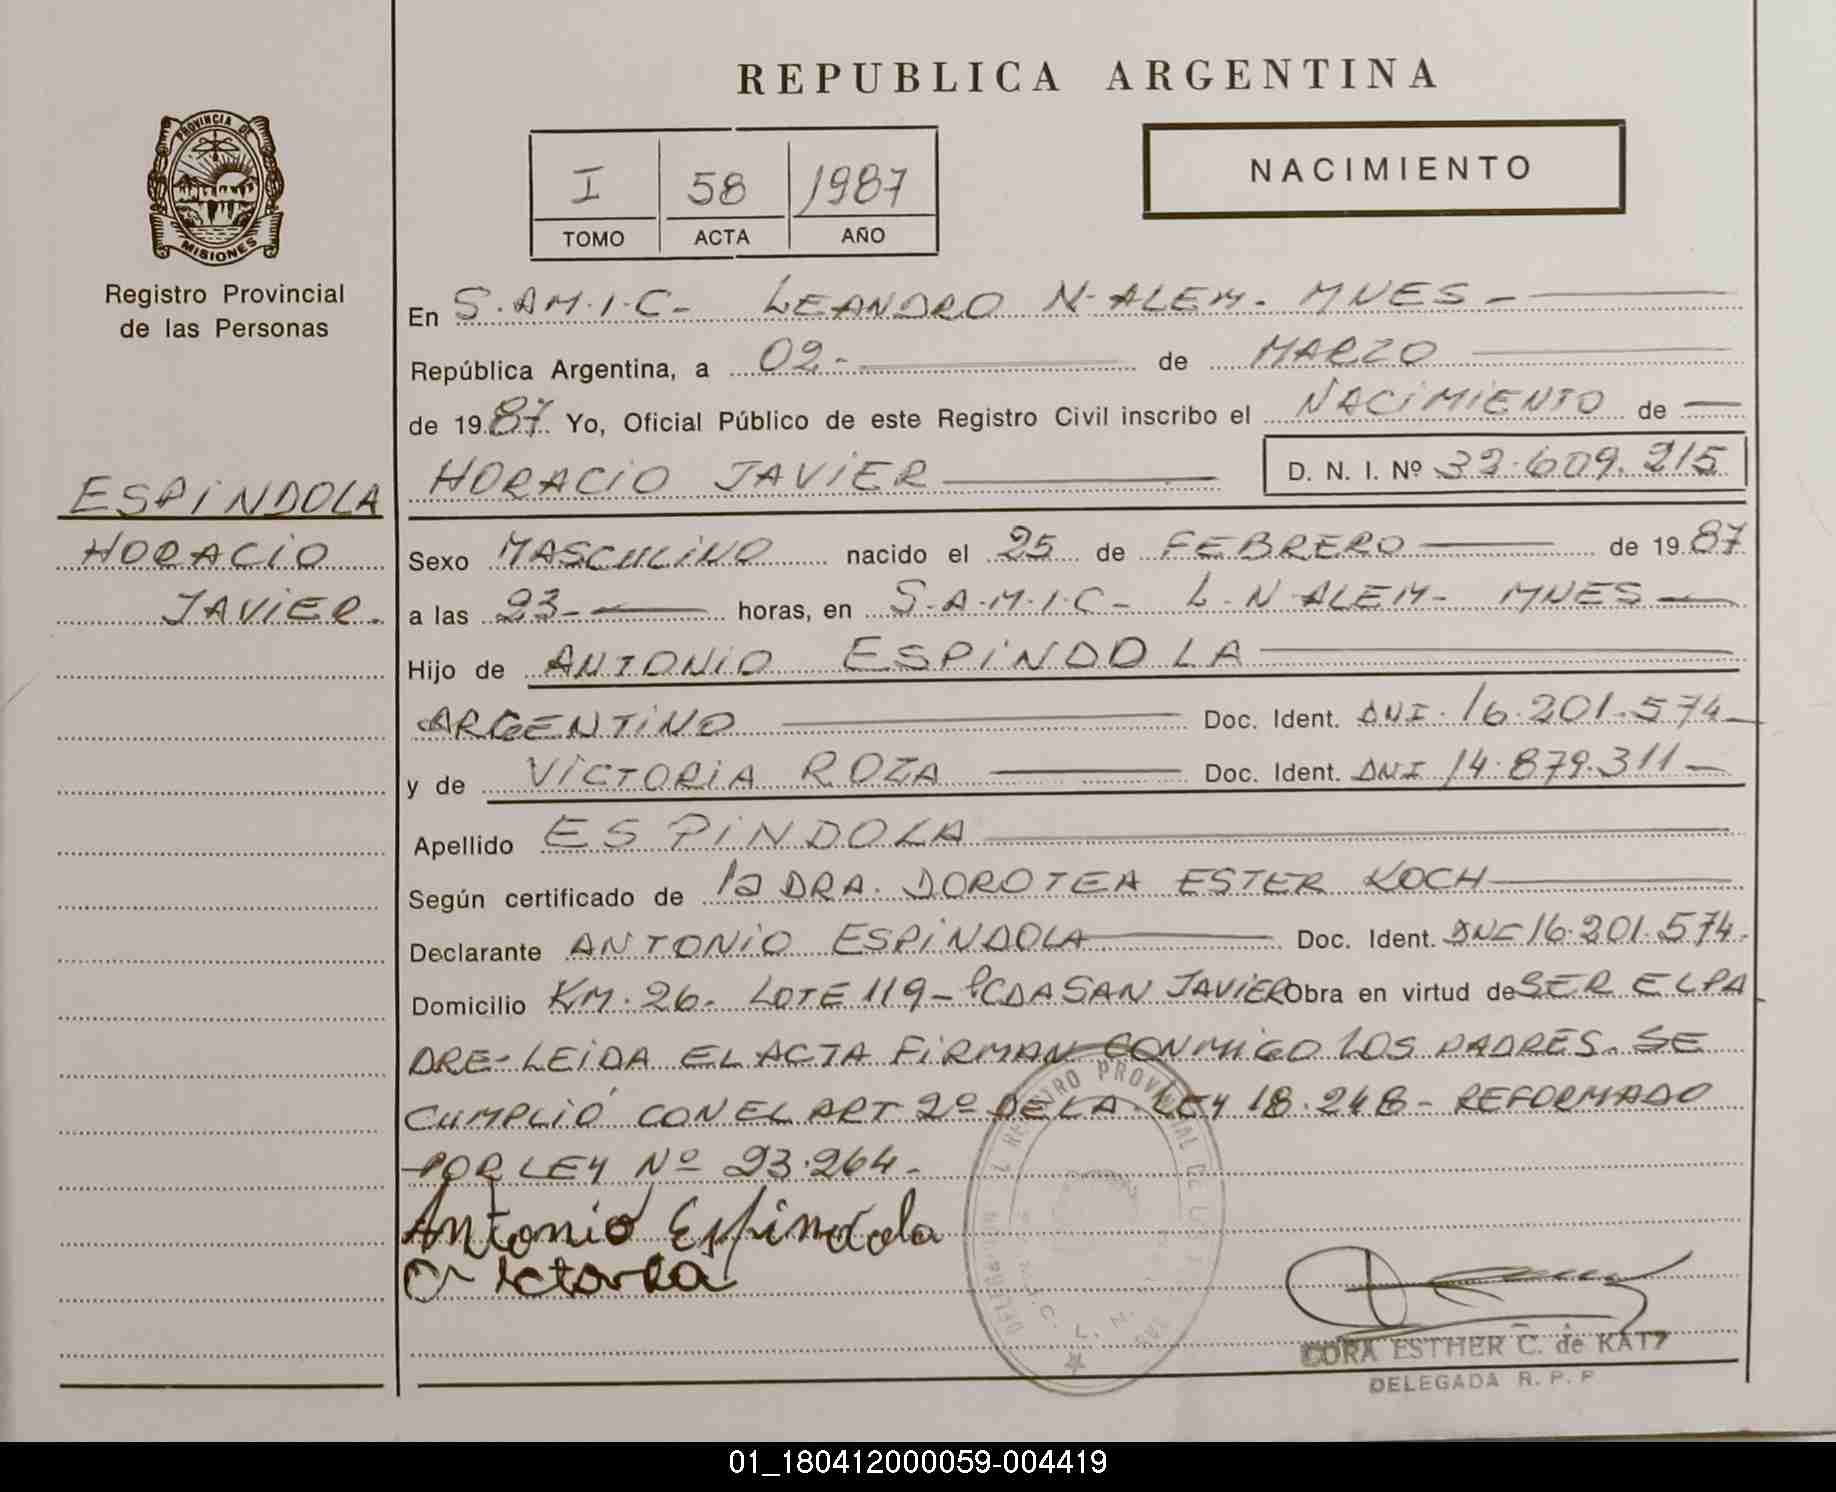 REPUBLICA ARGENTINA
PROVINCIA DE
MISIONES
Registro Provincial
de las Personas
I 58 1987
TOMO ACTA AÑO
NACIMIENTO
En S.AM.I.C- LEANDRO N-ALEM- MNES-
República Argentina, a 02- de MARZO
de 1987 Yo, Oficial Público de este Registro Civil inscribo el NACIMIENTO de
HORACIO JAVIER D. N. I. Nº 32.609.215
ESPINDOLA
HORACIO
JAVIER.
Sexo MASCULINO nacido el 25 de FEBRERO de 1987
a las 23- horas, en S-A-M-I-C- L-N-ALEM- MNES
Hijo de ANTONIO ESPINDOLA
ARGENTINO Doc. Ident. DNI. 16.201.574
y de VICTORIA ROZA Doc. Ident. DNI 14.879.311
Apellido ESPINDOLA
Según certificado de la DRA. DOROTEA ESTER KOCH
Declarante ANTONIO ESPINDOLA Doc. Ident. DNI 16.201.574-
Domicilio KM.26- LOTE 119- PCDA SAN JAVIER Obra en virtud de SER EL PA
DRE-LEIDA EL ACTA FIRMAN CONMIGO LOS PADRES. SE
CUMPLIÓ CON EL ART 2º DE LA LEY 18.248- REFORMADO
POR LEY Nº 23.264.
Antonio Espindola
Victoria
CORA ESTHER C. de KATZ
DELEGADA R. P. P
01_180412000059-004419